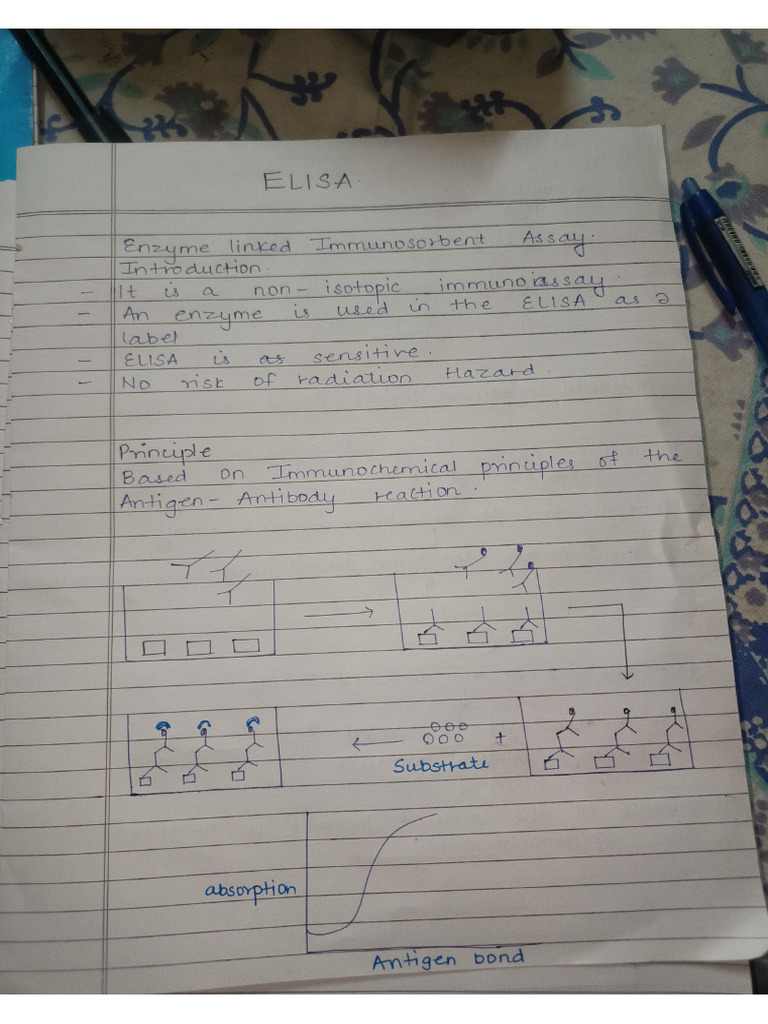 ELISA.
Enzyme linked Immunosorbent Assay.
Introduction.
- It is a non-isotopic immunoassay.
- An enzyme is used in the ELISA as a
label
- ELISA is as sensitive.
- No risk of radiation Hazard.
Principle
Based on Immunochemical principles of the
Antigen-Antibody reaction.
+
Substrate
absorption
Antigen bond